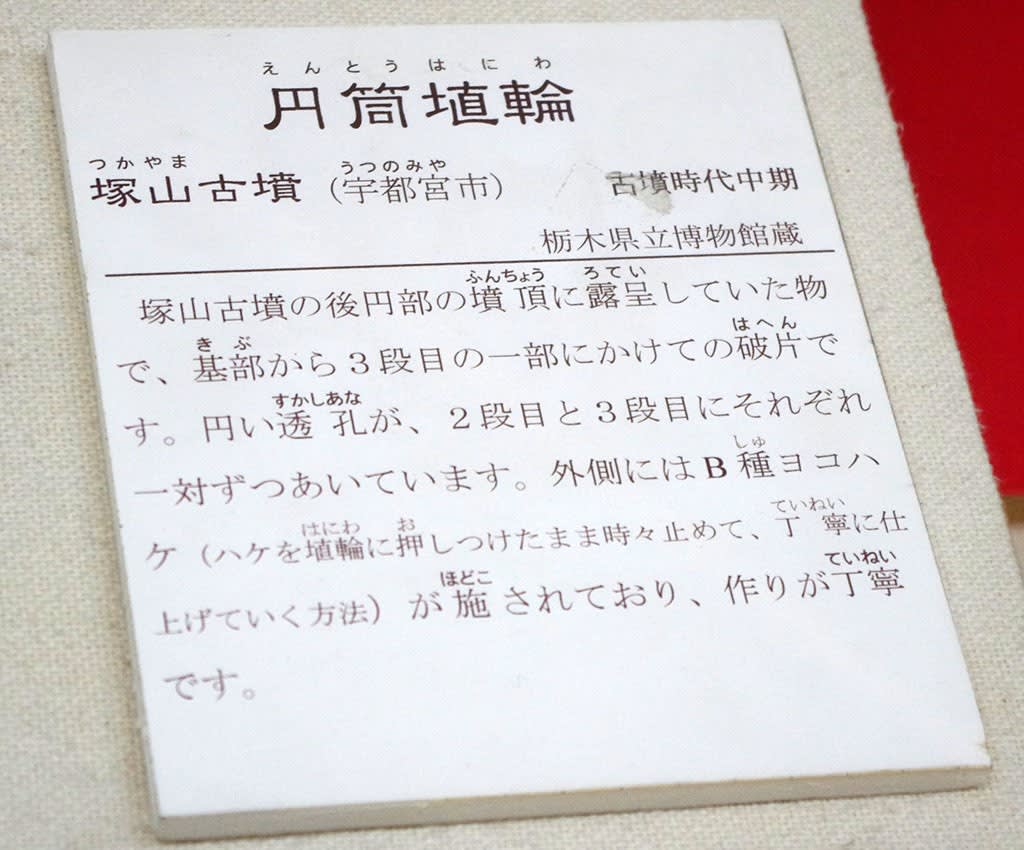 えんとうはにわ
円筒埴輪
つかやま うつのみや
塚山古墳（宇都宮市） 古墳時代中期
栃木県立博物館蔵
ふんちょう ろてい
塚山古墳の後円部の墳頂に露呈していた物
きぶ はへん
で、基部から３段目の一部にかけての破片で
すかしあな
す。円い透孔が、２段目と３段目にそれぞれ
しゅ
一対ずつあいています。外側にはＢ種ヨコハ
はにわ お ていねい
ケ（ハケを埴輪に押しつけたまま時々止めて、丁寧に仕
ほどこ ていねい
上げていく方法）が施されており、作りが丁寧
です。